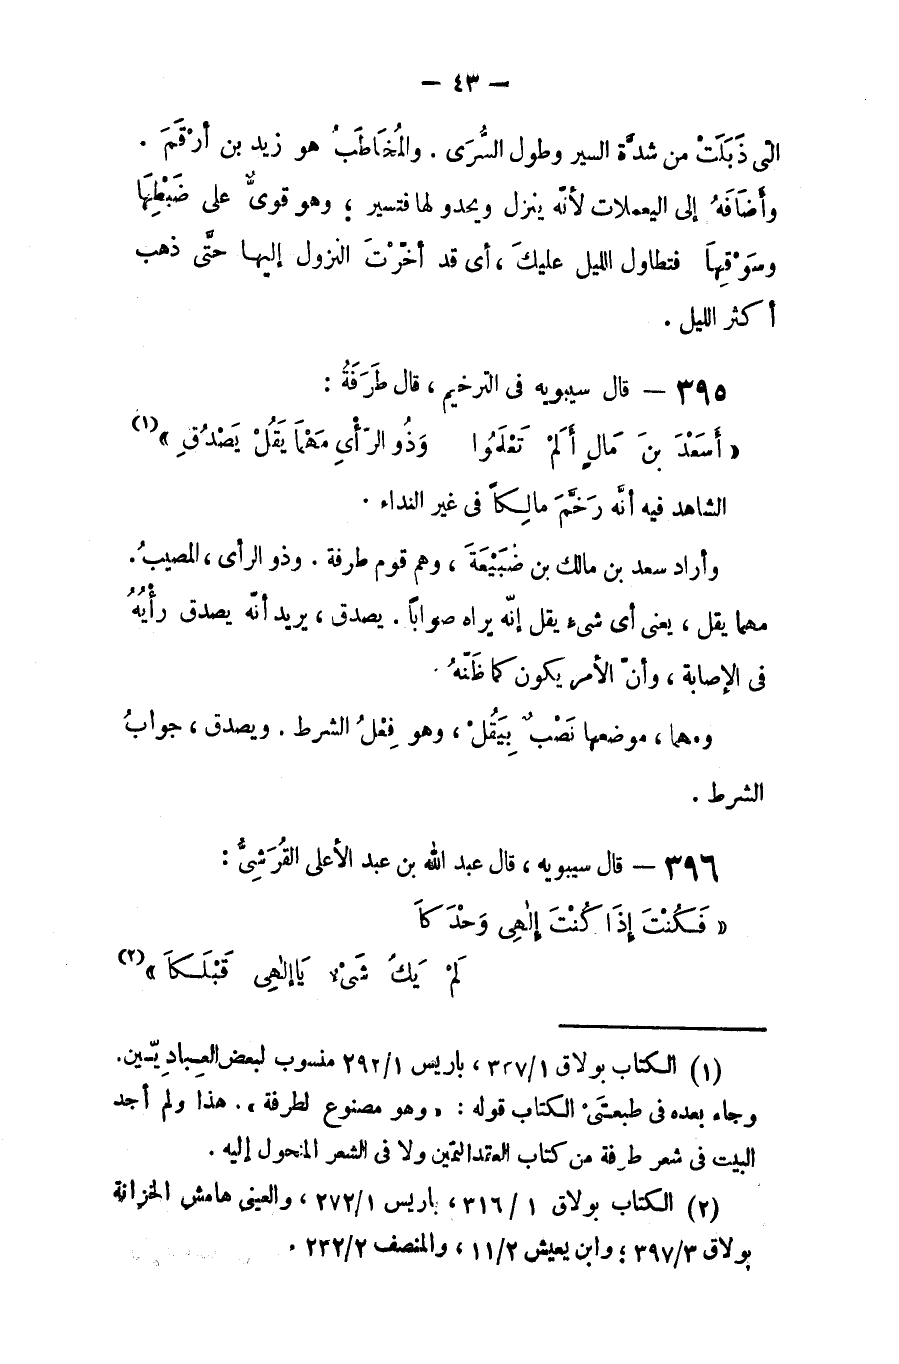 — ٤٣ —
التى ذَبَلَتْ من شدَّة السير وطول السُّرَى . والمُخَاطَبُ هو زيد بن أَرْقَمَ .
وأَضَافَهُ إلى اليعملات لأنّه ينزل ويحدو لها فتسير ؛ وهو قوىٌّ على ضَبْطِهَا
وسَوْقِهاَ فتطاول الليل عليكَ ، أى قد أخّرْتَ النزول إليها حتَّى ذهب
أكثر الليل .
٣٩٥ — قال سيبويه فى الترخيم ، قال طَرَفَةُ :
« أَسَعْدَ بنَ مَالٍ أَلَمْ تَعْلَمُوا وَذُو الرّأْىِ مَهْمَا يَقُلْ يَصْدُقِ »(١)
الشاهد فيه أنَّه رَخَّمَ مالِكاً فى غير النداء .
وأراد سعد بن مالك بن ضُبَيْعَةَ ، وهم قوم طرفة . وذو الرأى ، المصيبُ .
مهما يقل ، يعنى أى شىء يقل إنّه يراه صواباً . يصدق ، يريد أنّه يصدق رأْيُهُ
فى الإصابة ، وأنّ الأمر يكون كما ظَنّهُ .
ومهما ، موضعها نَصْبٌ بِيَقُلْ ، وهو فِعْلُ الشرط . ويصدق ، جوابُ
الشرط .
٣٩٦ — قال سيبويه ، قال عبد الله بن عبد الأعلى القُرَشِىُّ :
« فَكُنْتَ إِذَا كُنْتَ إِلٰهِى وَحْدَكاَ
لَمْ يَكُ شَىْءٌ يَاإِلٰهِى قَبْلَكاَ »(٢)
(١) الكتاب بولاق ٣٣٧/١ ، باريس ٢٩٢/١ منسوب لبعض العِبادِيّين .
وجاء بعده فى طبعتَىْ الكتاب قوله : « وهو مصنوع لطرفة » . هذا ولم أجد
البيت فى شعر طرفة من كتاب العقد الثمين ولا فى الشعر المنحول إليه .
(٢) الكتاب بولاق ٣١٦/١ ، باريس ٢٧٢/١ ، والعينى هامش الخزانة
بولاق ٣٩٧/٣ ؛ وابن يعيش ١١/٢ ، والمنصف ٢٣٢/٢ .